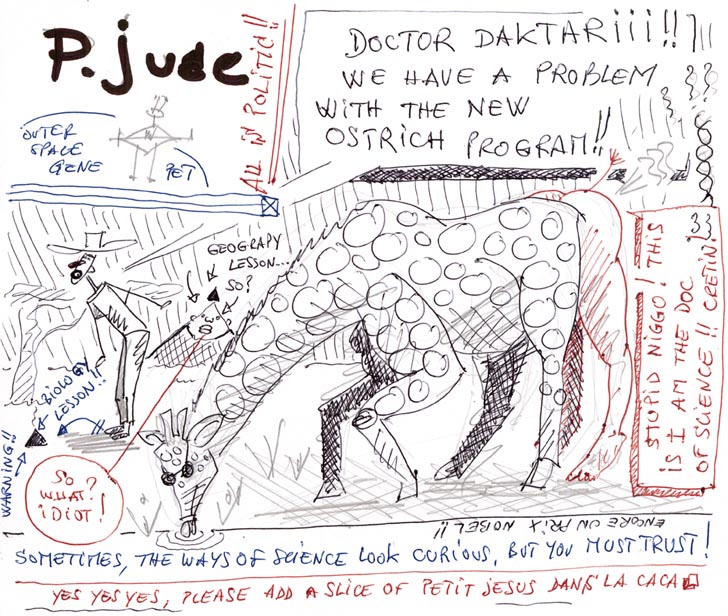 P. Jude
ALL IN POLITIC!!
DOCTOR DAKTARiii!!
WE HAVE A PROBLEM
WITH THE NEW
OSTRICH PROGRAM!!
OUTER
SPACE
GENE
PET
GEOGRAPY
LESSON...
SO?
BIOLOGY
LESSON!!
WARNING!!
SO
WHAT?
IDIOT!
STUPID NIGGO! THIS
IS I AM THE DOC
OF SCIENCE!! CRETIN!
ENCORE UN PRIX NOBEL!!
SOMETIMES, THE WAYS OF SCIENCE LOOK CURIOUS, BUT YOU MUST TRUST!
YES YES YES, PLEASE ADD A SLICE OF PETIT JESUS DANS LA CACA